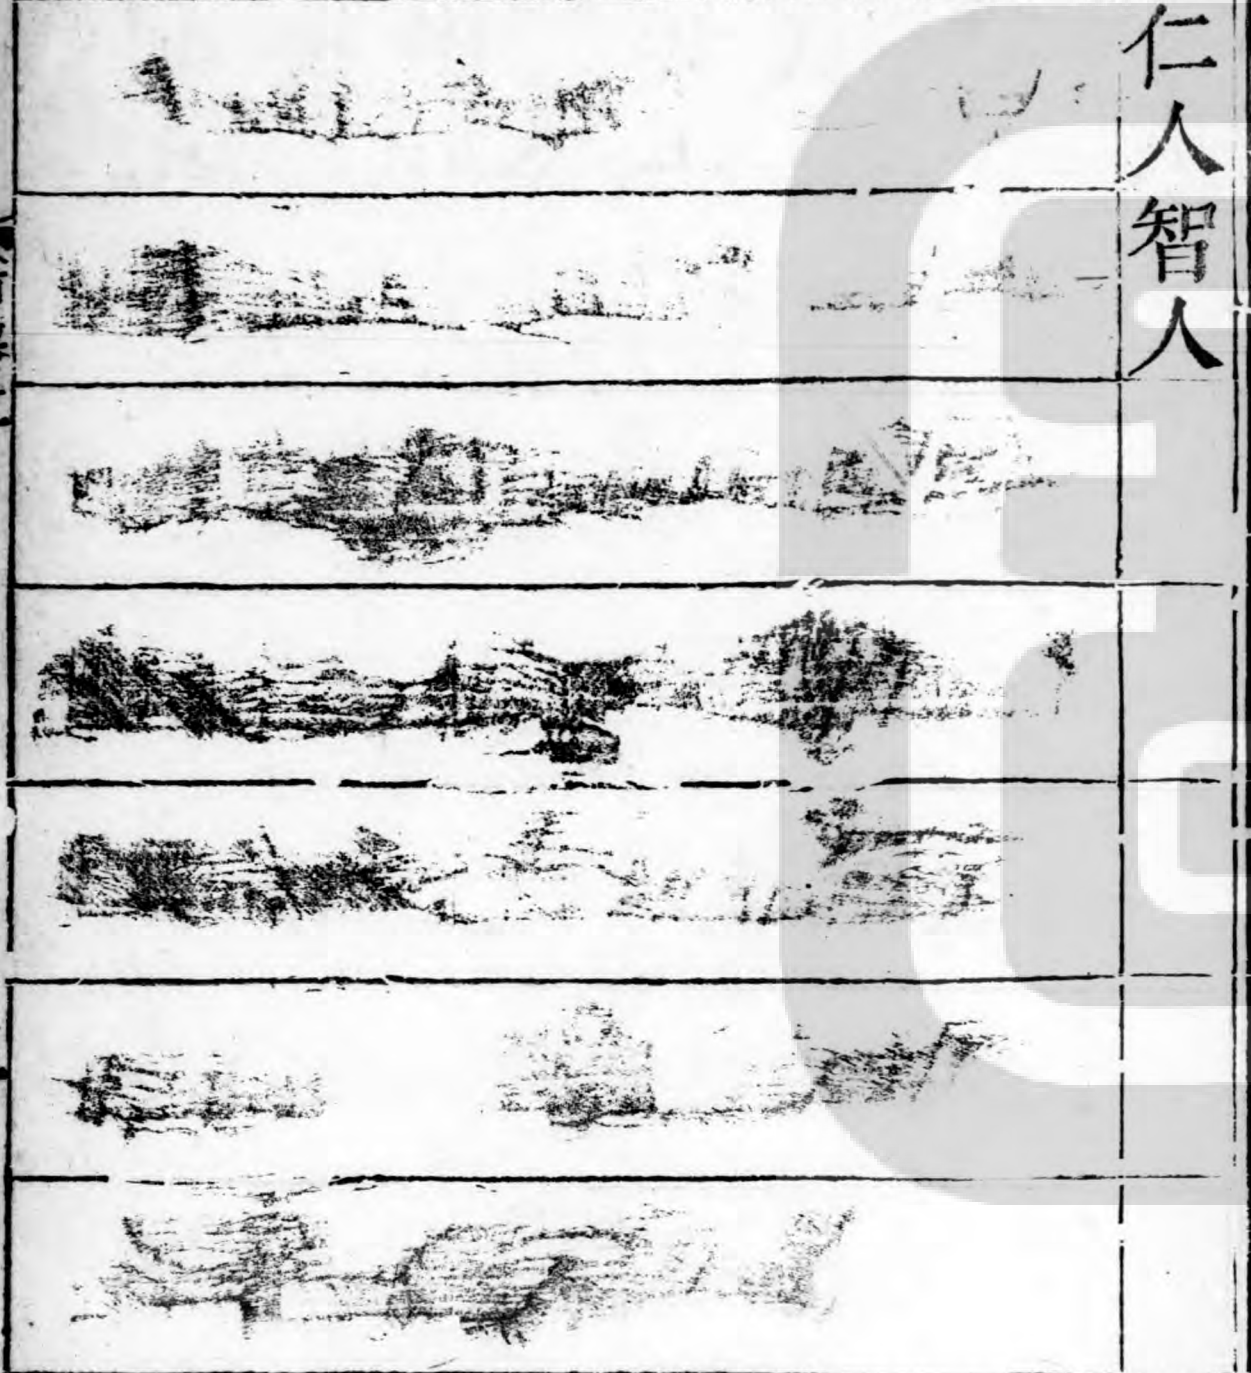 仁人智人